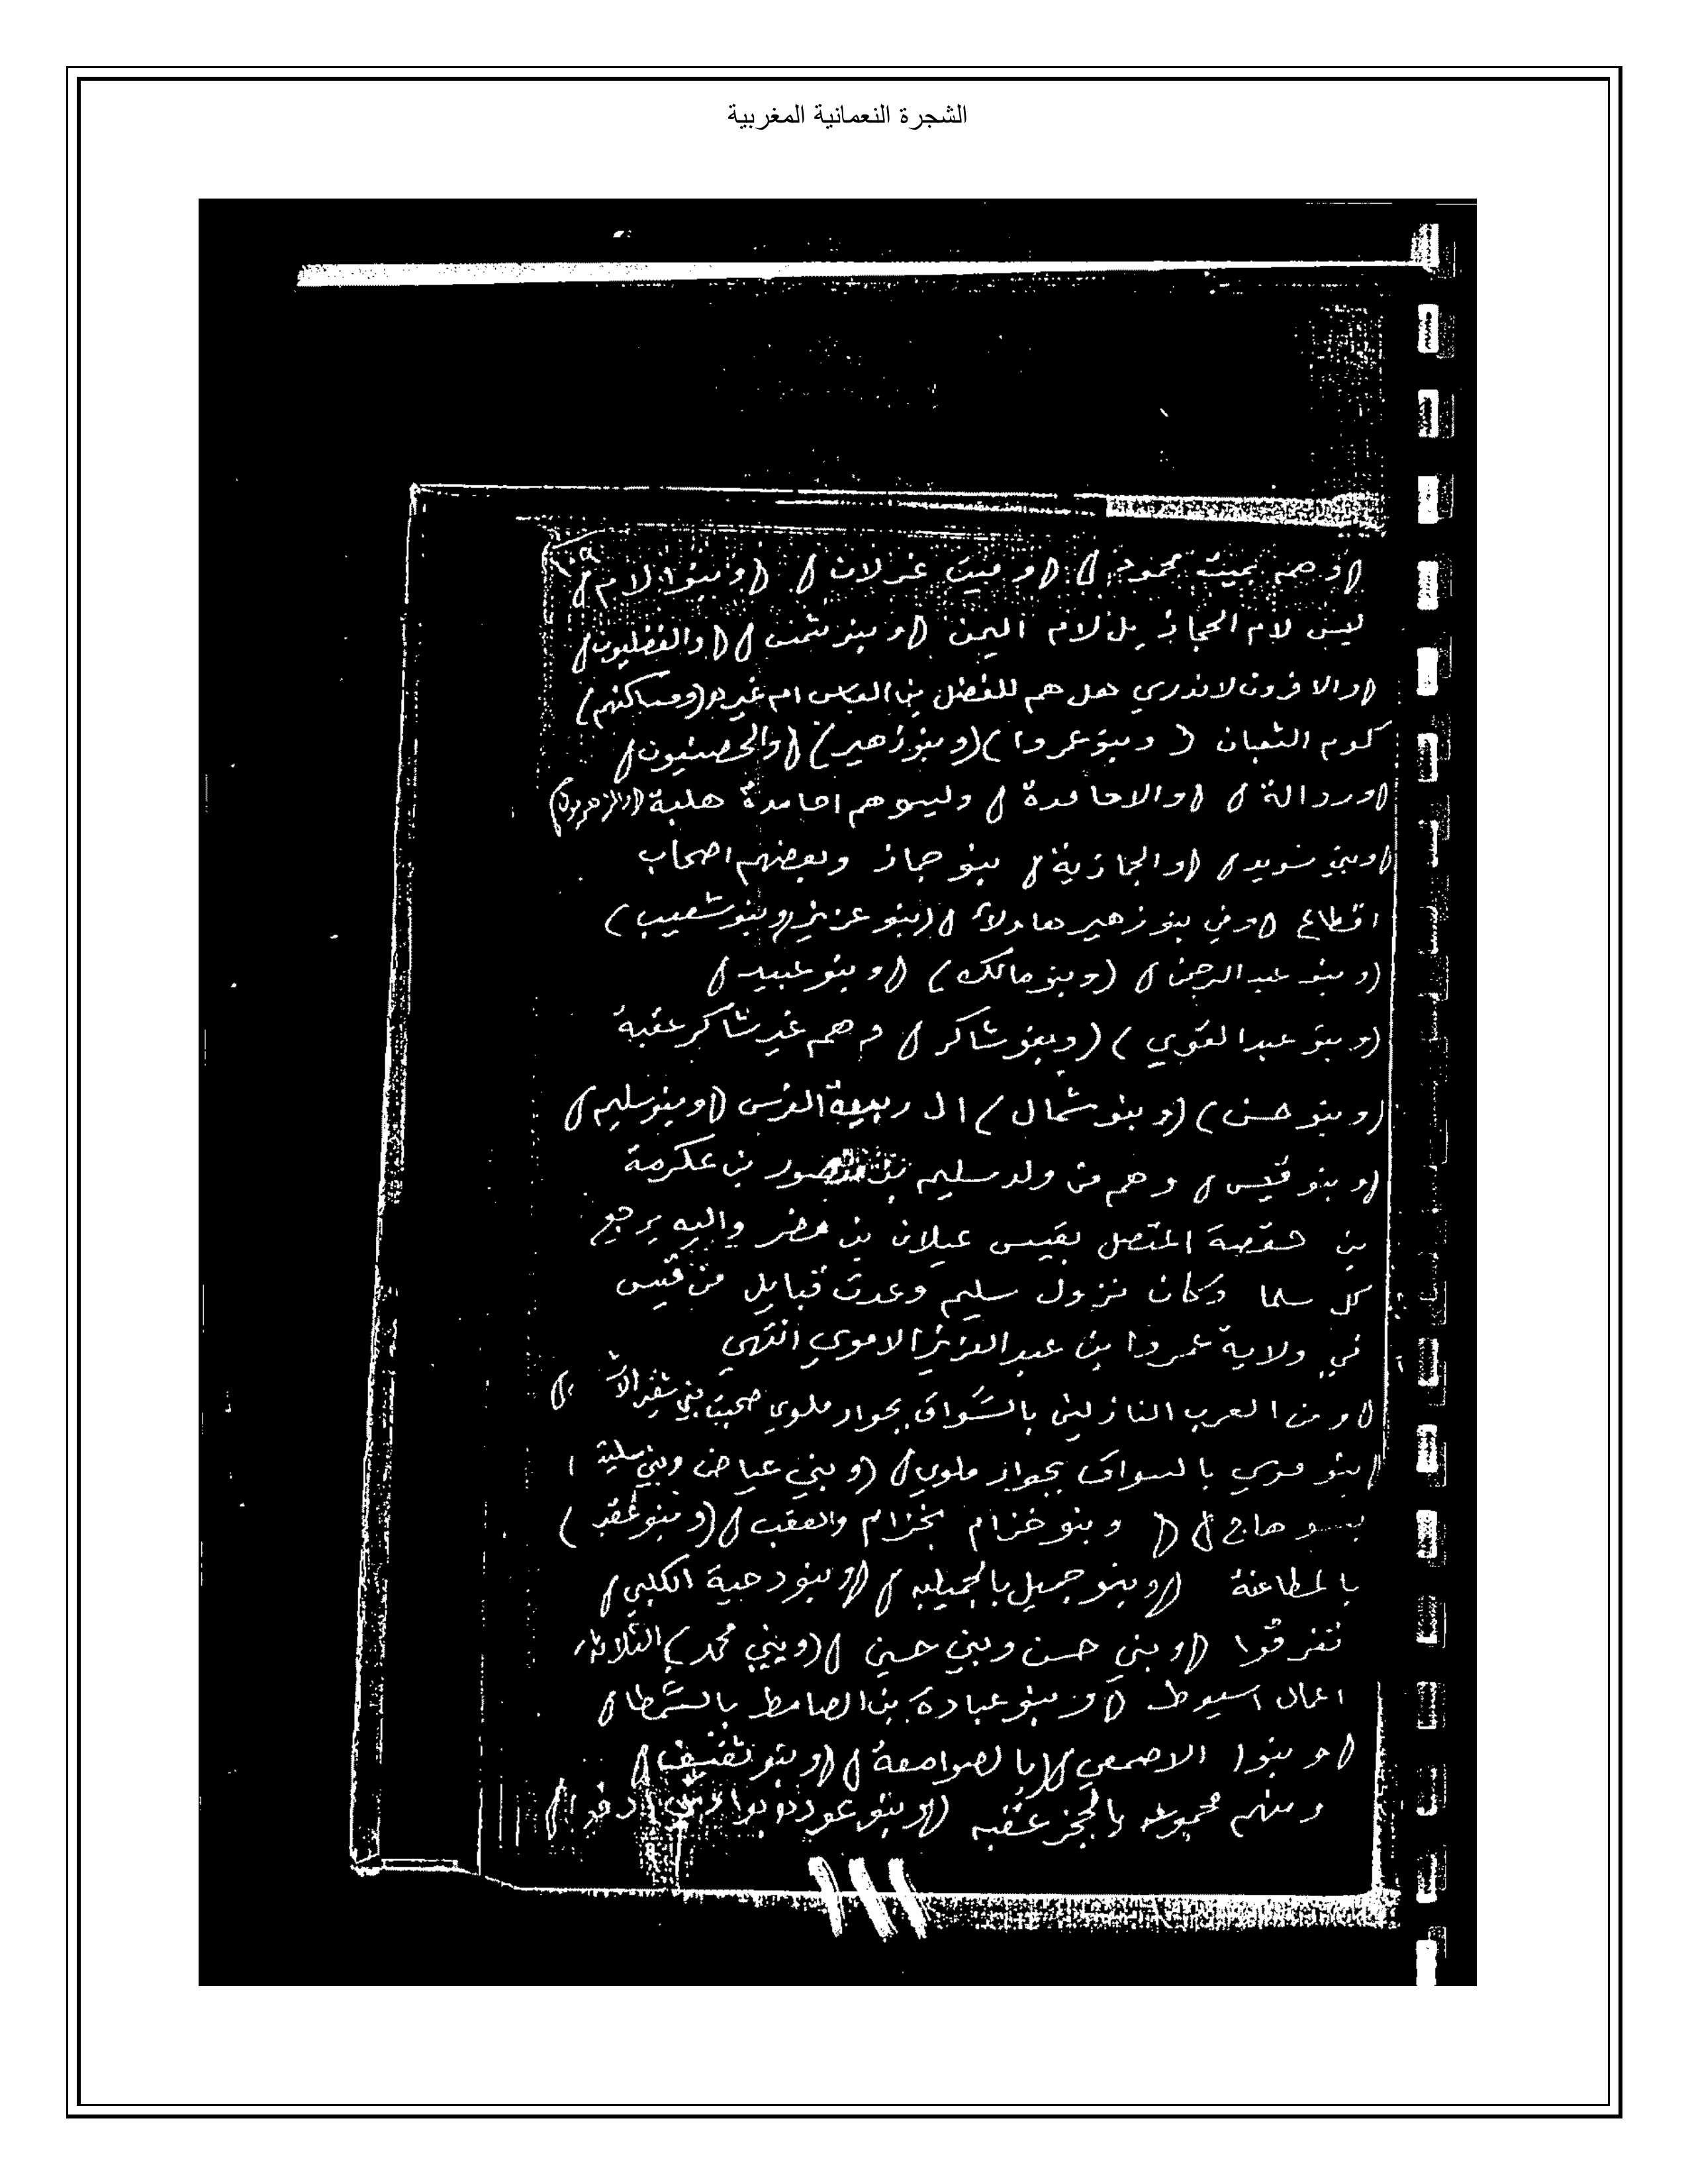 الشجرة النعمانية المغربية
(وهم بيت محمود) (وبيت غزلان) (وبنوا لام)
ليس لام الحجاز بل لام اليمن (وبنو شمس) (والفضليون)
(والافرون لاندري هل هم للفضل بن العباس ام غيره (ومساكنهم)
كوم الثعبان (وبنو عمروا) (وبنو زهير) (والحصنيون)
(وردالة) (والاحامدة) وليسوهم احامدة هلبة
(وبني سويد) (والجمازية) بنو جماز وبعضهم اصحاب
اقطاع (وفي بنو زهير هاولاء) (بنو عزيز) (وبنو شعيب)
(وبنو عبد الرحمن) (وبنو مالك) (وبنو عبيد)
(وبنو عبد القوي) (وبنو شاكر) وهم غير شاكر عقبة
(وبنو حسن) (وبنو شمال) ال ربيعة الفرس (وبنو سليم)
(وبنو قيس) وهم من ولد سليم بن منصور بن عكرمة
بن حفصة المتصل بقيس عيلان بن مضر واليه يرجع
كل سلما وكان نزول سليم وعدت قبايل من قيس
في ولاية عمروا بن عبد العزيز الاموي انتهي
(ومن العرب النازلين بالسواق بجوار ملوي صحبت بني
بنو موسي بالسواق بجوار ملوي) (وبني عياض وبني
حاج) (وبنو خزام بخزام والعقب) (وبنو عقبه)
بالمطاعنة (وبنو جميل بالجميليه) (وبنو دحية الكلبي)
تفرقوا (وبني حسن وبني حسين) (وبني محمد) الثلاثة
اعمال اسيوط (وبنو عبادة بن الصامط بالشمطا)
(وبنوا الاصمعي) (بالصوامعة) (وبنو ثقيف)
ومنهم مجموعه بالحجز عقبه (وبنو
١١١